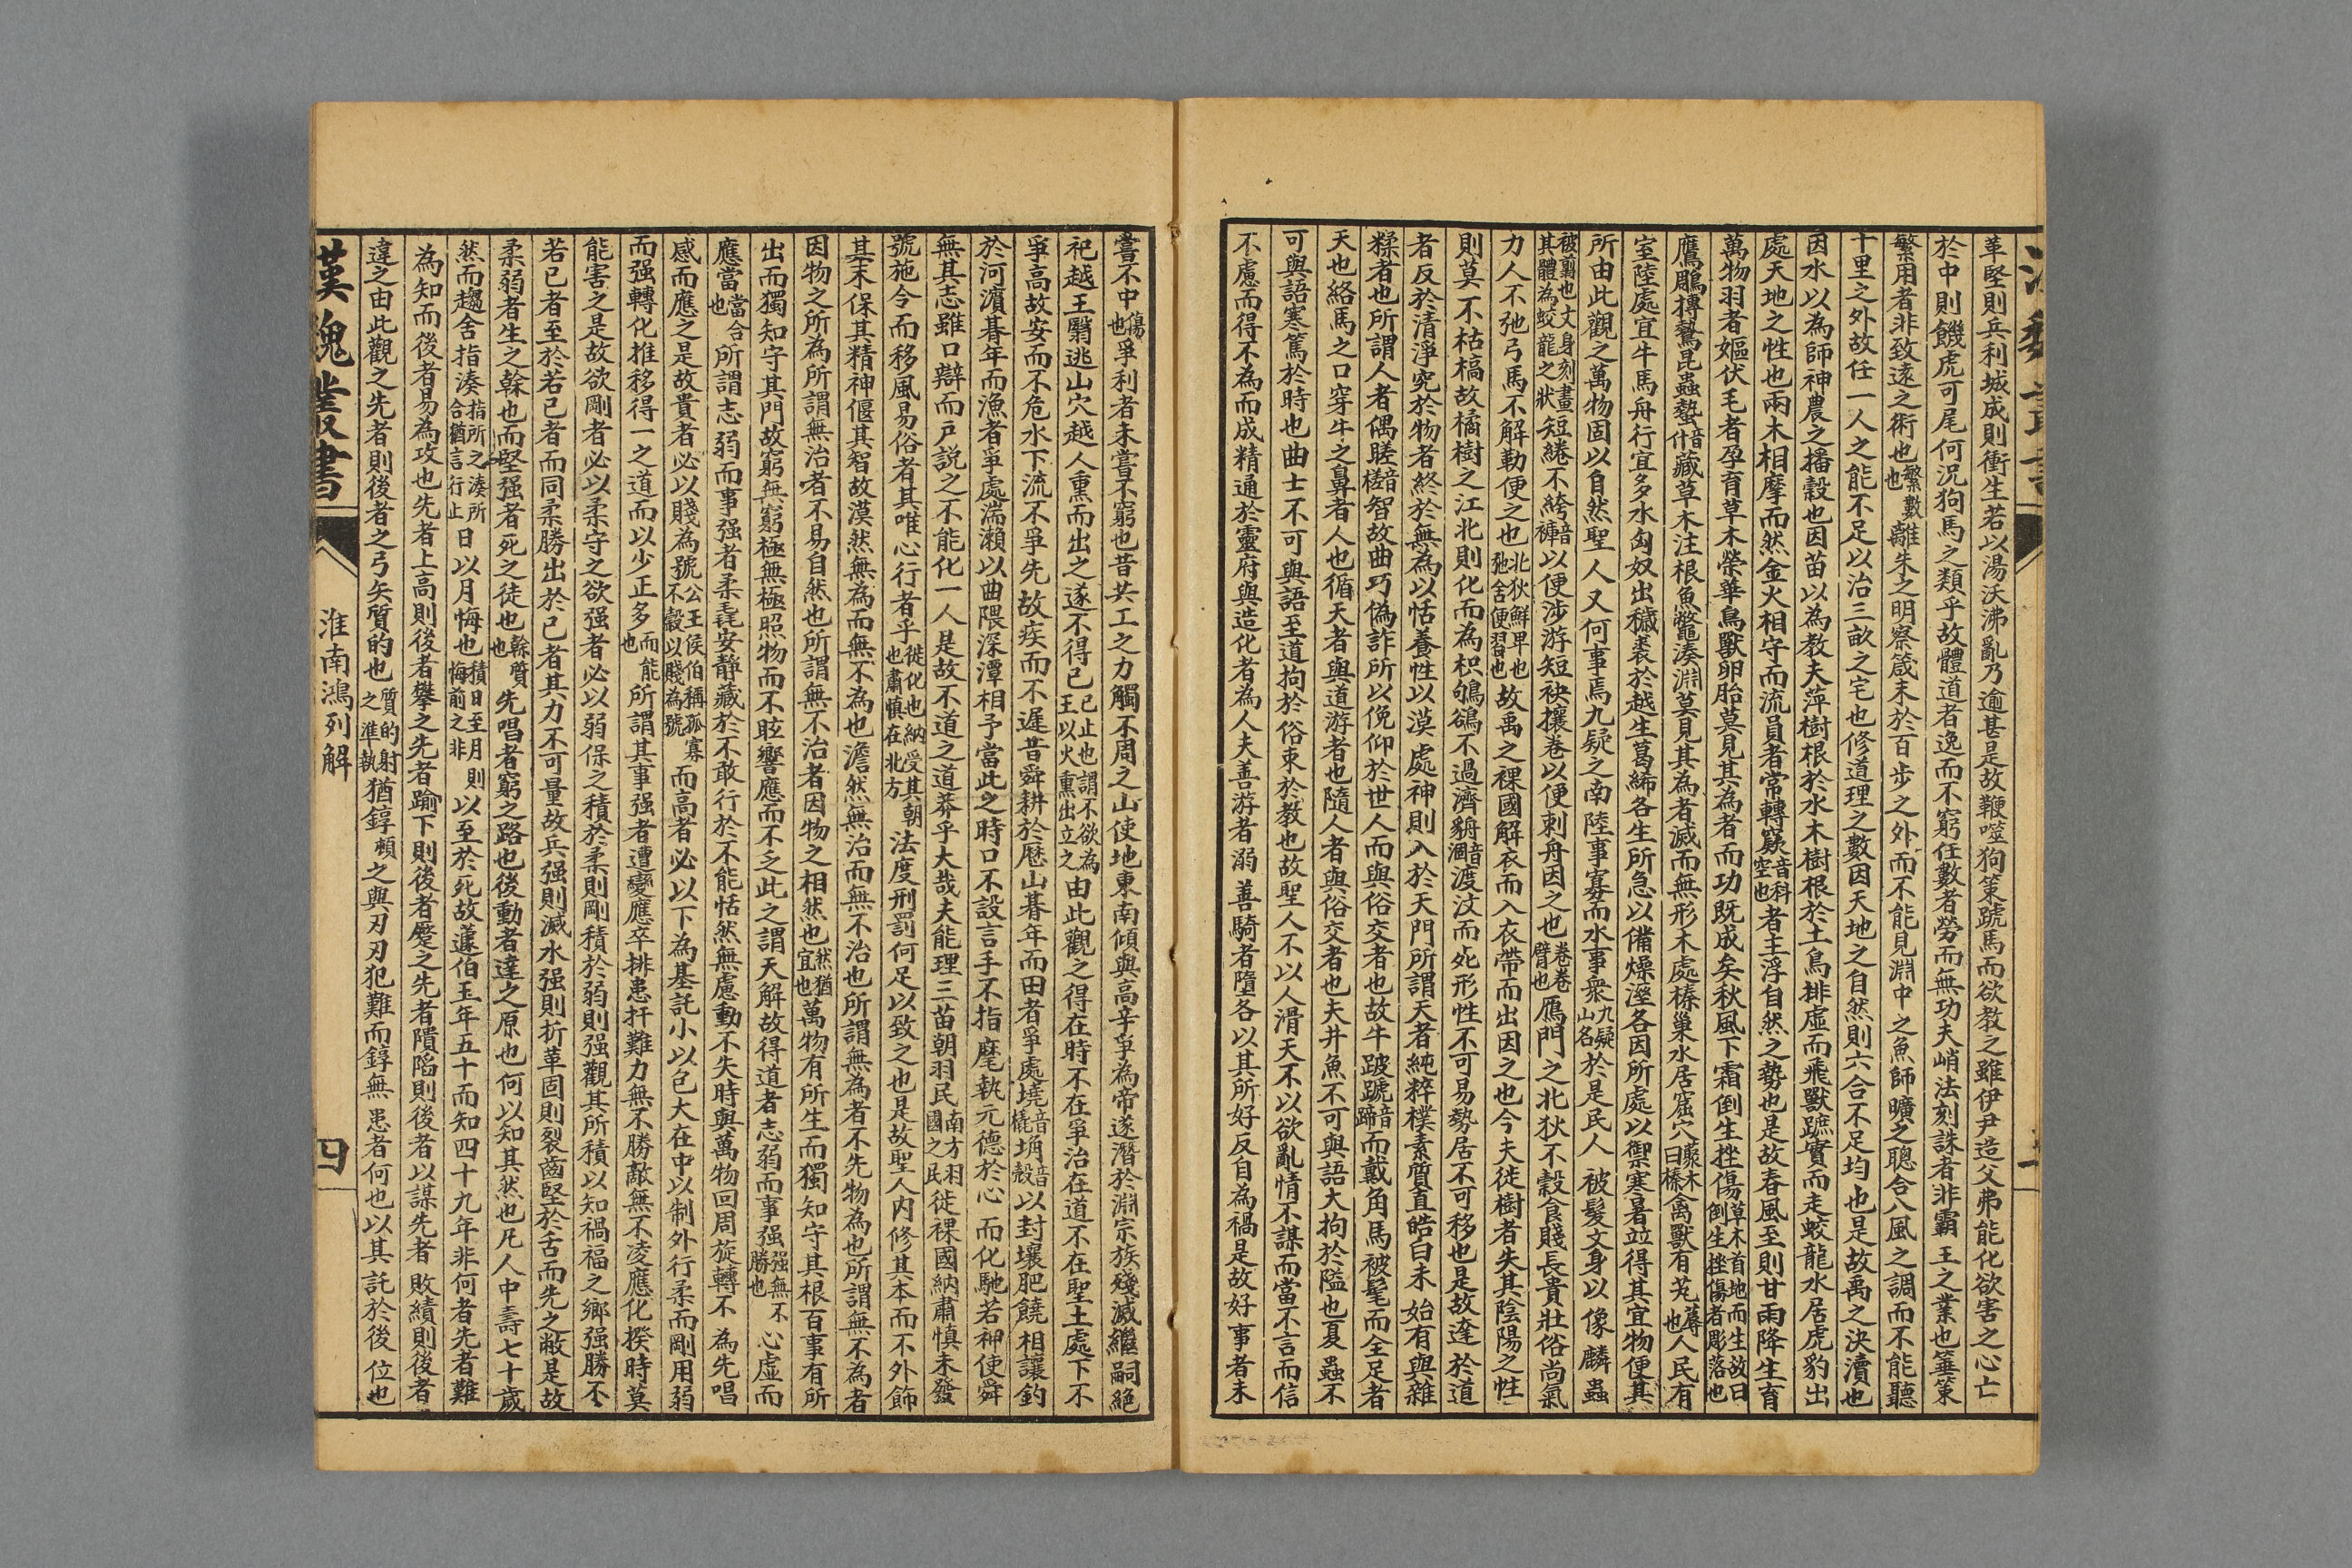 革堅則兵利城成則衝生若以湯沃沸亂乃逾甚是故鞭噬狗策蹏馬而欲教之雖伊尹造父弗能化欲害之心亡
於中則饑虎可尾何況狗馬之類乎故體道者逸而不窮任數者勞而無功夫峭法刻誅者非霸王之業也箠策
繁用者非致遠之術也繁數也離朱之明察箴末於百步之外而不能見淵中之魚師曠之聰合八風之調而不能聽
十里之外故任一人之能不足以治三畝之宅也修道理之數因天地之自然則六合不足均也是故禹之決瀆也
因水以為師神農之播穀也因苗以為教夫萍樹根於水木樹根於土鳥排虛而飛獸蹠實而走蛟龍水居虎豹出
處天地之性也兩木相摩而然金火相守而流員者常轉窾音科空也者主浮自然之勢也是故春風至則甘雨降生育
萬物羽者嫗伏毛者孕育草木榮華鳥獸卵胎莫見其為者而功既成矣秋風下霜倒生挫傷草木首地而生故曰倒生挫傷者彫落也
鷹鵰搏鷙昆蟲蟄音什藏草木注根魚鼈湊淵莫見其為者滅而無形木處榛巢水居窟穴聚木曰榛禽獸有艽蓐也人民有
室陸處宜牛馬舟行宜多水匈奴出穢裘於越生葛絺各生所急以備燥溼各因所處以禦寒暑竝得其宜物便其
所由此觀之萬物固以自然聖人又何事焉九疑之南陸事寡而水事衆九疑山名於是民人被髮文身以像麟蟲
被翦也文身刻畫其體為蛟龍之狀短綣不絝音褲以便涉游短袂攘卷以便刺舟因之也卷卷臂也鴈門之北狄不穀食賤長貴壯俗尚氣
力人不弛弓馬不解勒便之也北狄鮮卑也弛舍便習也故禹之裸國解衣而入衣帶而出因之也今夫徙樹者失其陰陽之性
則莫不枯槁故橘樹之江北則化而為枳鴝鵒不過濟貈音涸渡汶而死形性不可易勢居不可移也是故達於道
者反於清淨究於物者終於無為以恬養性以漠處神則入於天門所謂天者純粹樸素質直皓白未始有與雜
糅者也所謂人者偶䁟音槎智故曲巧偽詐所以俛仰於世人而與俗交者也故牛跛蹏音蹄而戴角馬被髦而全足者
天也絡馬之口穿牛之鼻者人也循天者與道游者也隨人者與俗交者也夫井魚不可與語大拘於隘也夏蟲不
可與語寒篤於時也曲士不可與語至道拘於俗束於教也故聖人不以人滑天不以欲亂情不謀而當不言而信
不慮而得不為而成精通於靈府與造化者為人夫善游者溺善騎者墮各以其所好反自為禍是故好事者未
嘗不中傷也爭利者未嘗不窮也昔共工之力觸不周之山使地東南傾與高辛爭為帝遂潛於淵宗族殘滅繼嗣絕
祀越王翳逃山穴越人熏而出之遂不得已已止也謂不欲為王以火熏出立之由此觀之得在時不在爭治在道不在聖土處下不
爭高故安而不危水下流不爭先故疾而不遲昔舜耕於歷山朞年而田者爭處墝音橇埆音殼以封壤肥饒相讓釣
於河濱朞年而漁者爭處湍瀨以曲隈深潭相予當此之時口不設言手不指麾執元德於心而化馳若神使舜
無其志雖口辯而戶說之不能化一人是故不道之道莽乎大哉夫能理三苗朝羽民南方羽國之民徙裸國納肅慎未發
號施令而移風易俗者其唯心行者乎徙化也納受其朝也肅慎在北方法度刑罰何足以致之也是故聖人內修其本而不外飾
其末保其精神偃其智故漠然無為而無不為也澹然無治而無不治也所謂無為者不先物為也所謂無不為者
因物之所為所謂無治者不易自然也所謂無不治者因物之相然也然猶宜也萬物有所生而獨知守其根百事有所
出而獨知守其門故窮無窮極無極照物而不眩響應而不乏此之謂天解故得道者志弱而事强强無不勝也心虛而
應當當合也所謂志弱而事强者柔毳安靜藏於不敢行於不能恬然無慮動不失時與萬物回周旋轉不為先唱
感而應之是故貴者必以賤為號公王侯伯稱孤寡不穀以賤為號而高者必以下為基託小以包大在中以制外行柔而剛用弱
而强轉化推移得一之道而以少正多而能也所謂其事强者遭變應卒排患扞難力無不勝敵無不凌應化揆時莫
能害之是故欲剛者必以柔守之欲强者必以弱保之積於柔則剛積於弱則强觀其所積以知禍福之鄉强勝不
若己者至於若己者而同柔勝出於己者其力不可量故兵强則滅木强則折革固則裂齒堅於舌而先之敝是故
柔弱者生之榦也而堅强者死之徒也榦質也先唱者窮之路也後動者達之原也何以知其然也凡人中壽七十歲
然而趨舍指湊指所之湊所合猶言行止日以月悔也積日至月悔前之非則以至於死故蘧伯玉年五十而知四十九年非何者先者難
為知而後者易為攻也先者上高則後者攀之先者踰下則後者蹷之先者隤陷則後者以謀先者敗績則後者
違之由此觀之先者則後者之弓矢質的也質的射之準執猶錞頓之與刃刃犯難而錞無患者何也以其託於後位也
漢魏叢書
淮南鴻列解
四